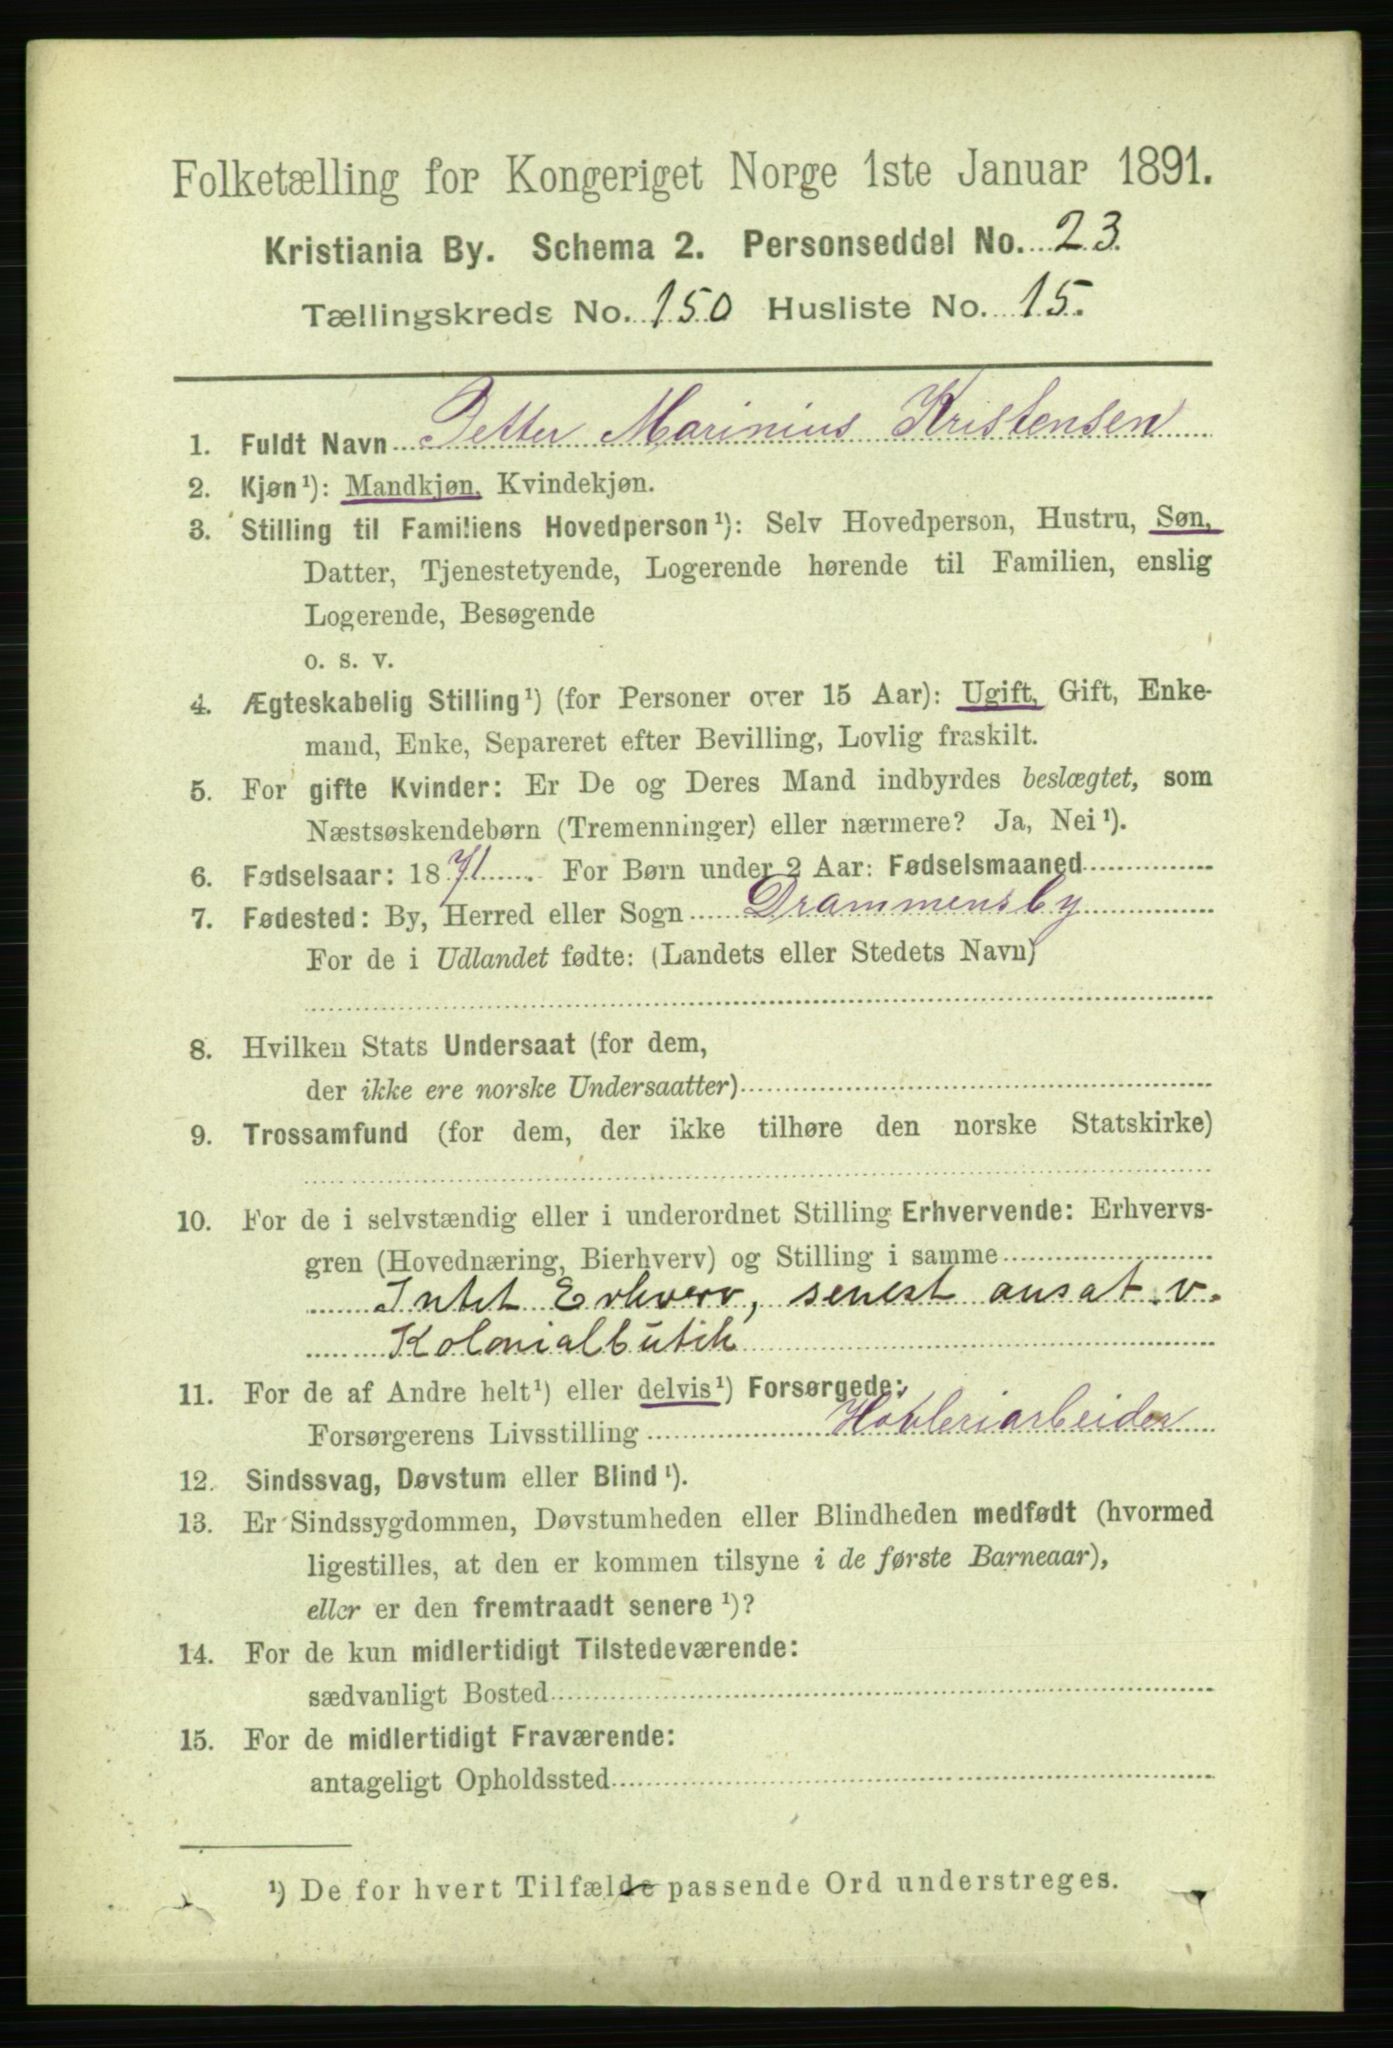 Folketælling for Kongeriget Norge 1ste Januar 1891.
Kristiania By. Schema 2. Personseddel No. 23.
Tællingskreds No. 150 Husliste No. 15.
1. Fuldt Navn Petter Marinius Kristensen
2. Kjøn¹): Mandkjøn, Kvindekjøn.
3. Stilling til Familiens Hovedperson¹): Selv Hovedperson, Hustru, Søn,
Datter, Tjenestetyende, Logerende hørende til Familien, enslig
Logerende, Besøgende
o. s. v.
4. Ægteskabelig Stilling¹) (for Personer over 15 Aar): Ugift, Gift, Enke-
mand, Enke, Separeret efter Bevilling, Lovlig fraskilt.
5. For gifte Kvinder: Er De og Deres Mand indbyrdes beslægtet, som
Næstsøskendebørn (Tremenninger) eller nærmere? Ja, Nei¹).
6. Fødselsaar: 1871. For Børn under 2 Aar: Fødselsmaaned
7. Fødested: By, Herred eller Sogn Drammensby
For de i Udlandet fødte: (Landets eller Stedets Navn)
8. Hvilken Stats Undersaat (for dem,
der ikke ere norske Undersaatter)
9. Trossamfund (for dem, der ikke tilhøre den norske Statskirke)
10. For de i selvstændig eller i underordnet Stilling Erhvervende: Erhvervs-
gren (Hovednæring, Bierhverv) og Stilling i samme
Intet Erhverv, senest ansat v.
Kolonialbutik
11. For de af Andre helt¹) eller delvis¹) Forsørgede:
Forsørgerens Livsstilling Høvleriarbeider
12. Sindssvag, Døvstum eller Blind¹).
13. Er Sindssygdommen, Døvstumheden eller Blindheden medfødt (hvormed
ligestilles, at den er kommen tilsyne i de første Barneaar),
eller er den fremtraadt senere¹)?
14. For de kun midlertidigt Tilstedeværende:
sædvanligt Bosted
15. For de midlertidigt Fraværende:
antageligt Opholdssted
¹) De for hvert Tilfælde passende Ord understreges.